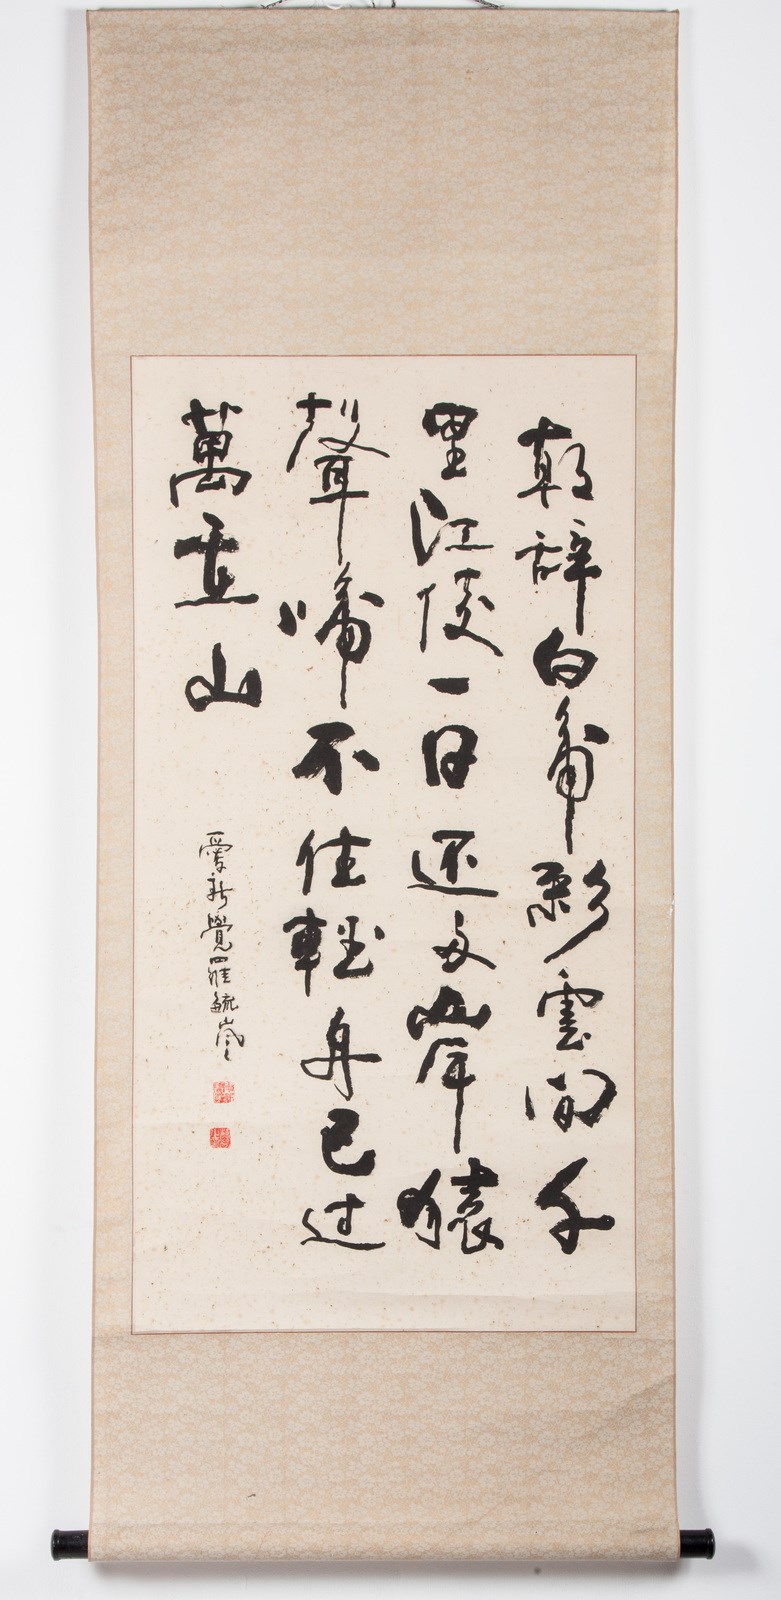 朝辞白帝彩雲间千
里江陵一日还两岸猿
聲啼不住輕舟已过
萬重山
愛新覺羅毓嵐